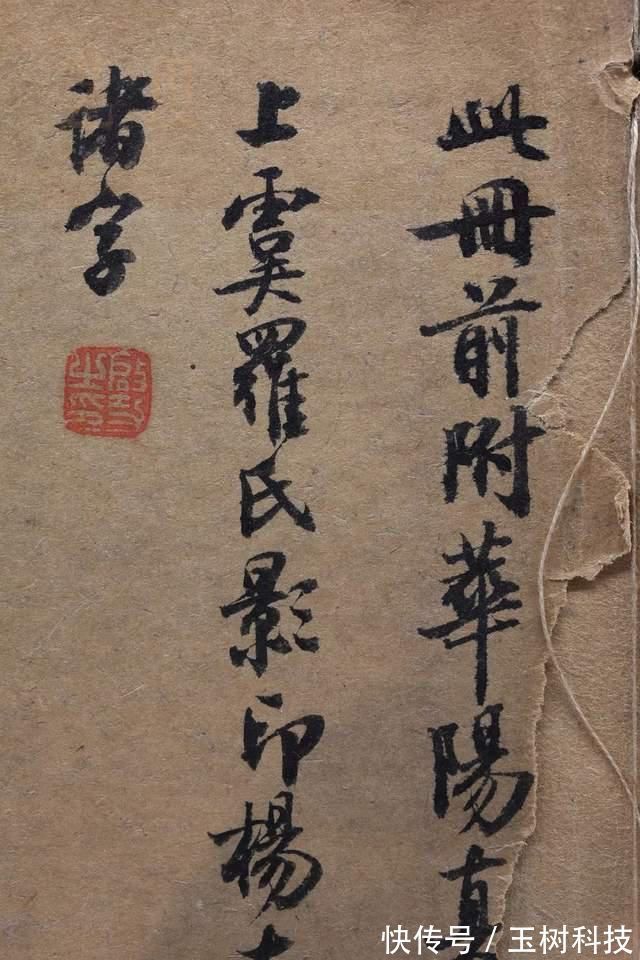 此冊前附華陽真
上虞羅氏影印楊大
諸字
啟功之印
快传号 / 玉树科技